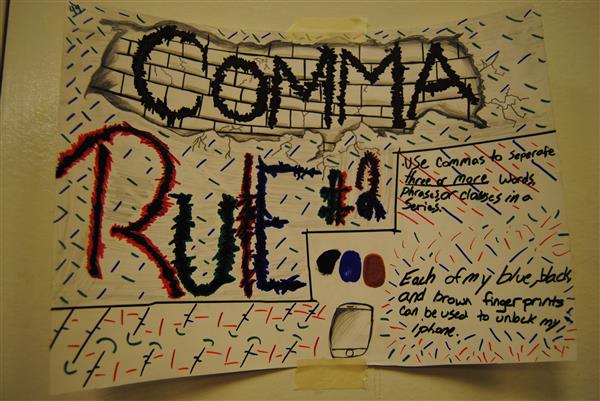 COMMA
RULE #2
Use Commas to seperate
three or more words,
phrases, or classes in a
series.
Each of my blue, black,
and brown fingerprints
can be used to unlock my
iphone.